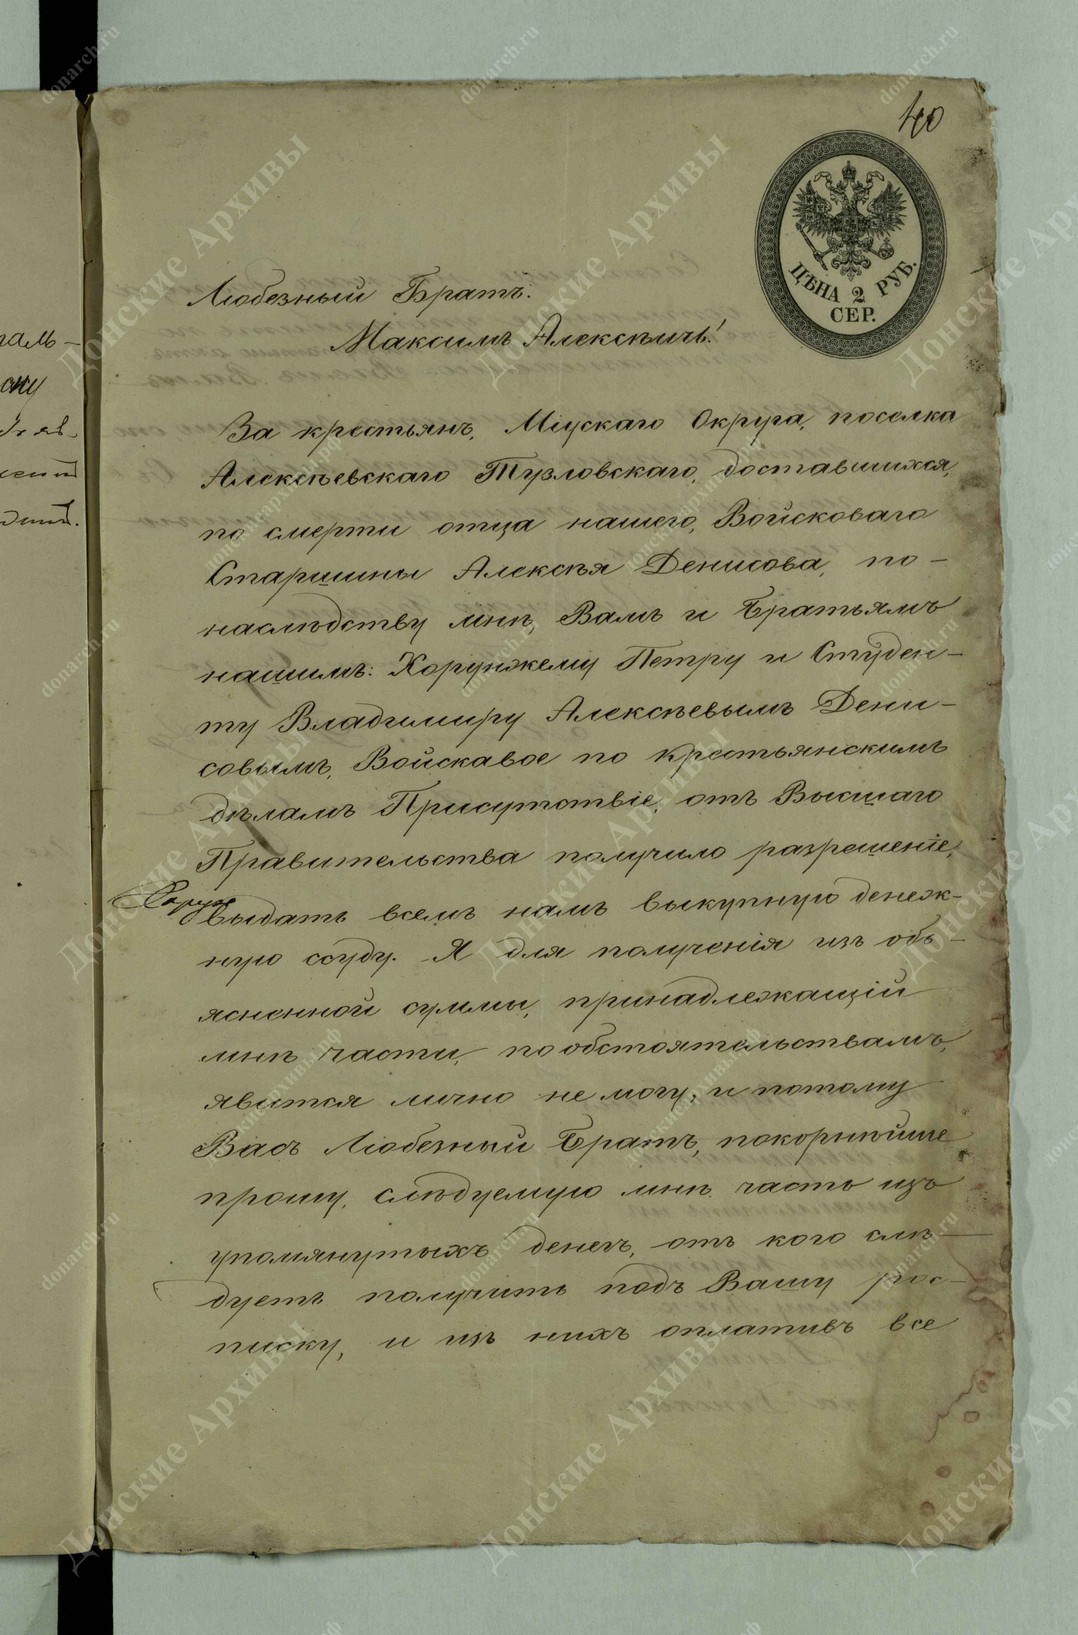 40
ЦѢНА 2 РУБ.
СЕР.
Любезный Братъ.
Максимъ Алексѣичъ!
За крестьянъ, Міускаго Округа, поселка
Алексѣевскаго Тузловскаго, доставшихся,
по смерти отца нашего, Войсковаго
Старшины Алексѣя Денисова, по-
наслѣдству мнѣ, Вамъ и Братьямъ
нашимъ: Хорунжему Петру и Студен-
ту Владимиру Алексѣевымъ Дени-
совымъ, Войскавое по крестьянскимъ
дѣламъ Присутствіе, отъ Высшаго
Правительства получило разрешеніе,
выдать всемъ намъ выкупную денеж-
ную ссуду. Я для полученія изъ объ-
ясненной суммы, принадлежащій
мнѣ части, по обстоятельствамъ,
явится лично не могу, и потому
Васъ Любезный Братъ, покорнѣйше
прошу, слѣдуемую мнѣ часть изъ
упомянутыхъ денегъ, отъ кого слѣ-
дуетъ получить подъ Вашу рос-
писку, и изъ нихъ оплативъ все